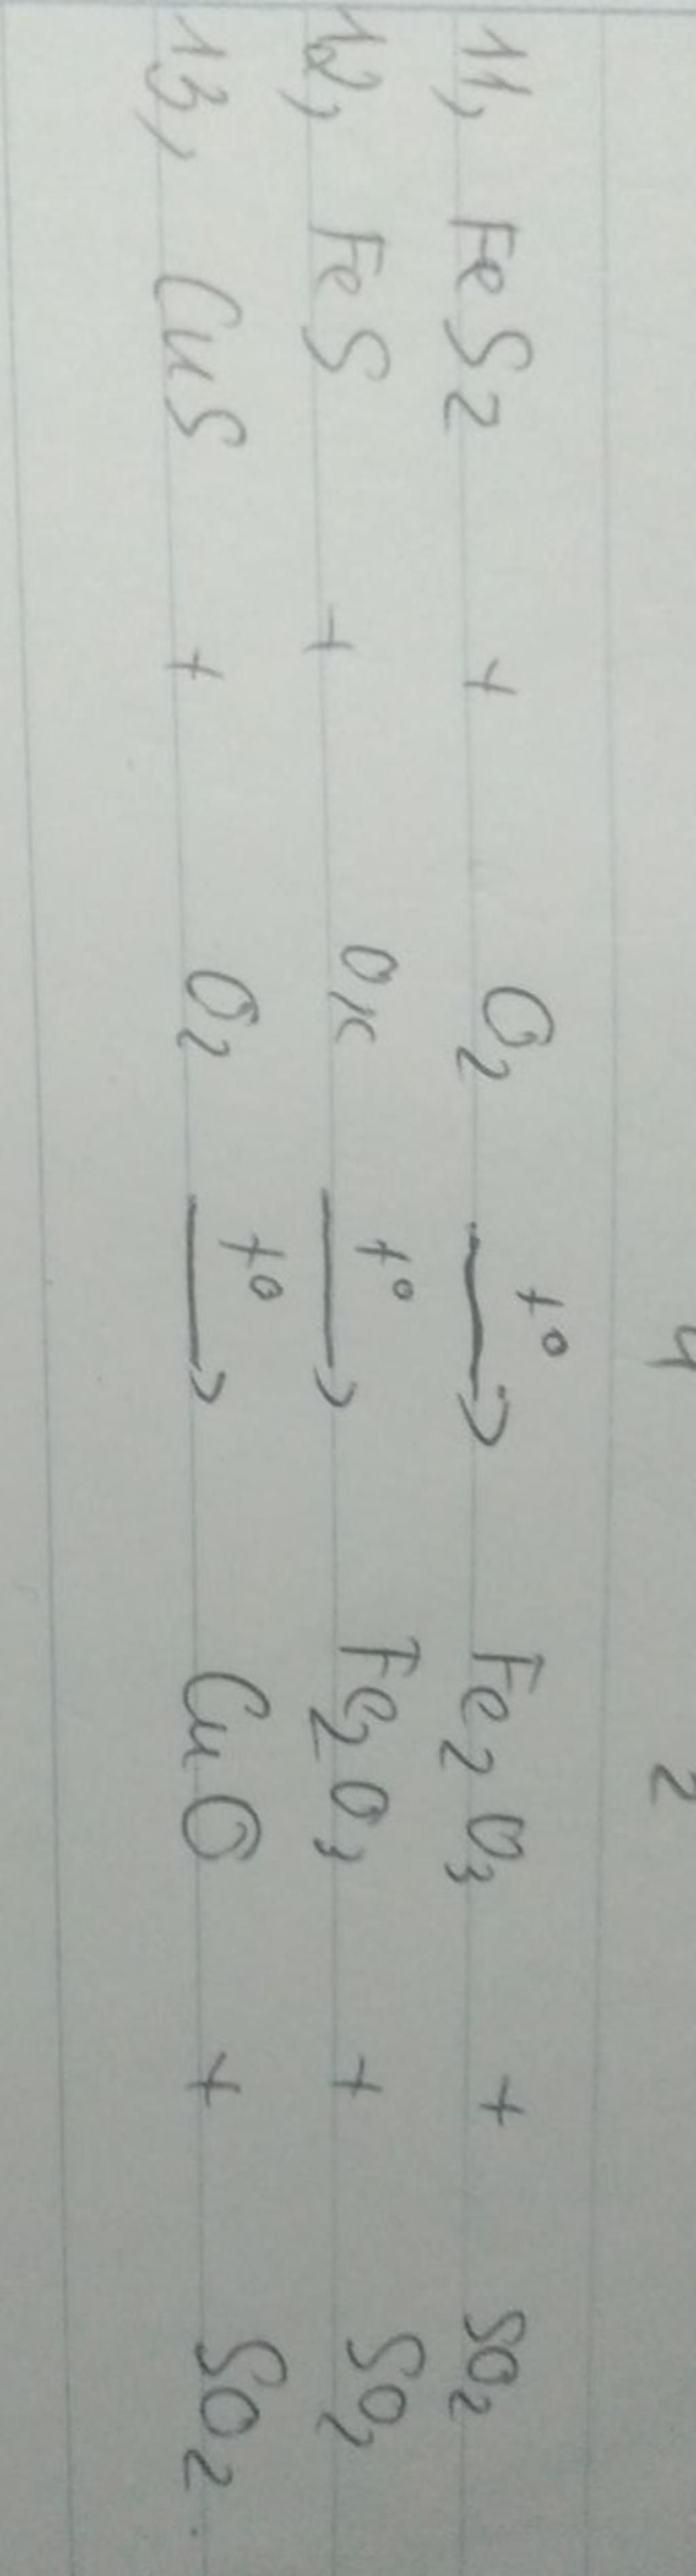 4 2
11, FeS2 + O2 t° → Fe2O3 + SO2
12, FeS + O2 t° → Fe2O3 + SO2
13, CuS + O2 t° → CuO + SO2.